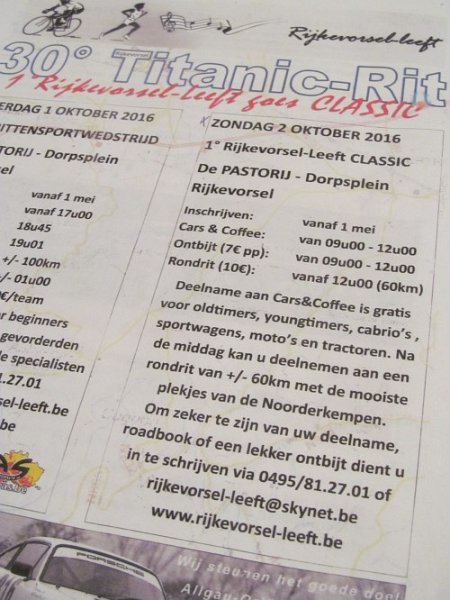 Rijkevorsel-leeft
30° Titanic-Rit
1 Rijkevorsel-leeft goes CLASSIC
ERDAG 1 OKTOBER 2016
ITTENSPORTWEDSTRIJD
PASTORIJ - Dorpsplein
vanaf 1 mei
vanaf 17u00
18u45
19u01
+/- 100km
+/- 01u00
€/team
r beginners
gevorderden
le specialisten
1.27.01
rsel-leeft.be
-leeft.be
ZONDAG 2 OKTOBER 2016
1° Rijkevorsel-Leeft CLASSIC
De PASTORIJ - Dorpsplein
Rijkevorsel
Inschrijven: vanaf 1 mei
Cars & Coffee: van 09u00 - 12u00
Ontbijt (7€ pp): van 09u00 - 12u00
Rondrit (10€): vanaf 12u00 (60km)
Deelname aan Cars&Coffee is gratis
voor oldtimers, youngtimers, cabrio's ,
sportwagens, moto's en tractoren. Na
de middag kan u deelnemen aan een
rondrit van +/- 60km met de mooiste
plekjes van de Noorderkempen.
Om zeker te zijn van uw deelname,
roadbook of een lekker ontbijt dient u
in te schrijven via 0495/81.27.01 of
rijkevorsel-leeft@skynet.be
www.rijkevorsel-leeft.be
PORSCHE
Wij steunen het goede doel